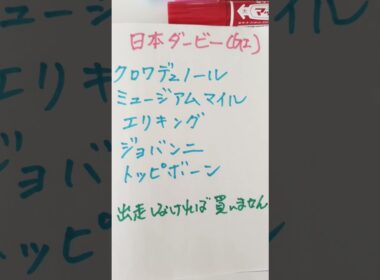 日本ダービー(G1)
クロワデュノール
ミュージアムマイル
エリキング
ジョバンニ
トッピボーン
出走しなければ買いません